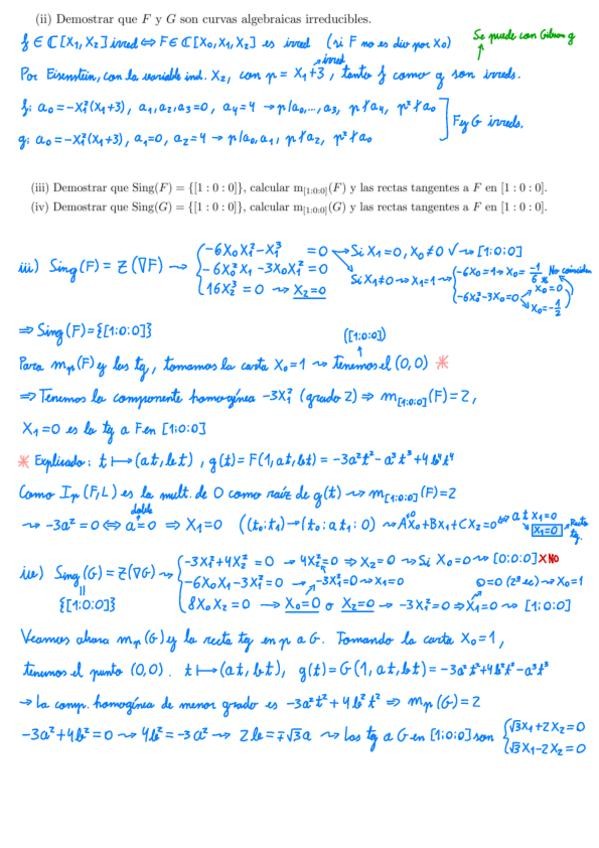 (ii) Demostrar que F y G son curvas algebraicas irreducibles.
f ∈ ℂ[X₁,X₂] irred ⇔ F ∈ ℂ[X₀,X₁,X₂] es irred (si F no es div por X₀)
Se puede con Gibson g
irred
Por Eisenstein, con la variable ind. X₂, con p = X₁+3, tanto f como g son irreds.
f: a₀ = -X₁²(X₁+3), a₁,a₂,a₃=0, a₄=4 → p|a₀,...,a₃, p∤a₄, p²∤a₀
g: a₀ = -X₁²(X₁+3), a₁=0, a₂=4 → p|a₀,a₁, p∤a₂, p²∤a₀
F y G irreds.
(iii) Demostrar que Sing(F) = {[1 : 0 : 0]}, calcular m[1:0:0](F) y las rectas tangentes a F en [1 : 0 : 0].
(iv) Demostrar que Sing(G) = {[1 : 0 : 0]}, calcular m[1:0:0](G) y las rectas tangentes a F en [1 : 0 : 0].
iii) Sing(F) = Z(∇F) ⇝ { -6X₀X₁²-X₁³ = 0 → Si X₁=0, X₀≠0 ✓ ⇝ [1:0:0]
-6X₀²X₁-3X₀X₁² = 0 Si X₁≠0 ⇝ X₁=1 ⇝ { -6X₀=1 → X₀ = -1/6 No coinciden
-6X₀²-3X₀=0 X₀=0 X₀=-1/2
16X₂³ = 0 ⇝ X₂=0
⇒ Sing(F)={[1:0:0]}
([1:0:0])
Para mp(F) y las tg, tomamos la carta X₀=1 ⇝ Tenemos el (0,0) *
⇒ Tenemos la componente homogénea -3X₁² (grado 2) ⇒ m[1:0:0](F)=2,
X₁=0 es la tg a F en [1:0:0]
* Explicado: t ↦ (at,bt), g(t)=F(1,at,bt) = -3a²t²-a³t³+4b⁴t⁴
Como Ip(F,L) es la mult. de 0 como raíz de g(t) ⇝ m[1:0:0](F)=2
doble
⇝ -3a²=0 ⇔ a=0 ⇒ X₁=0 ((t₀:t₁)→(t₀:at₁:0) ⇝ AX₀+BX₁+CX₂=0 X₁=0 Recta tg.
iv) Sing(G) = Z(∇G) ⇝ { -3X₁²+4X₂² = 0 → 4X₂²=0 ⇒ X₂=0 ⇝ Si X₀=0 ⇝ [0:0:0] X NO
{[1:0:0]} -6X₀X₁-3X₁²=0 → -3X₁²=0 ⇝ X₁=0
8X₀X₂ = 0 → X₀=0 o X₂=0 → -3X₁²=0 ⇒ X₁=0 ⇝ [1:0:0]
Veamos ahora mp(G) y la recta tg en p a G. Tomando la carta X₀=1,
tenemos el punto (0,0). t ↦ (at,bt), g(t)=G(1,at,bt)=-3a²t²+4b²t²-a³t³
→ La comp. homogénea de menor grado es -3a²t²+4b²t² ⇒ mp(G)=2
-3a²+4b²=0 ⇝ 4b²=-3a² ⇝ 2b=∓√3a ⇝ Las tg a G en [1:0:0] son { √3X₁+2X₂=0
√3X₁-2X₂=0